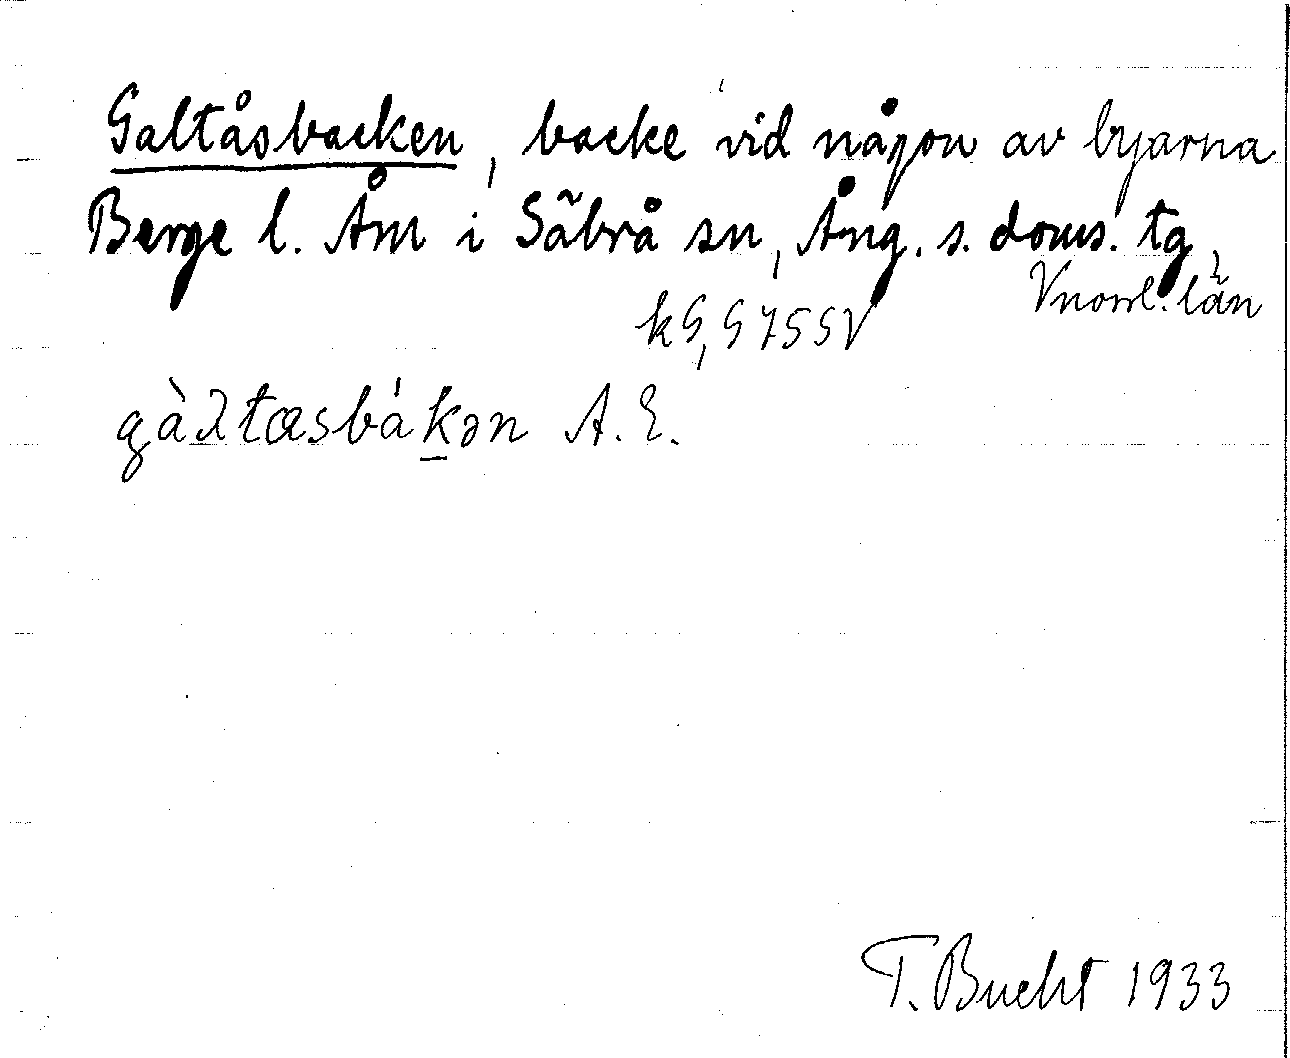 Galtåsbacken, backe vid någon av byarna
Berge l. Åm i Säbrå sn, Ång. s. doms. tg,
Vnorrl. län
kG, G 75 SV
gàλtæsbákən A. E.
T. Bucht 1933